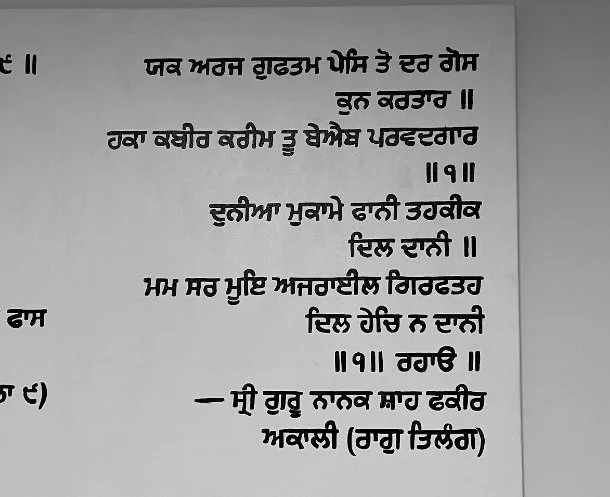 ੯ ॥
ਯਕ ਅਰਜ ਗੁਫਤਮ ਪੇਸਿ ਤੋ ਦਰ ਗੋਸ
ਕੁਨ ਕਰਤਾਰ ॥
ਹਕਾ ਕਬੀਰ ਕਰੀਮ ਤੂ ਬੇਐਬ ਪਰਵਦਗਾਰ
॥੧॥
ਦੁਨੀਆ ਮੁਕਾਮੇ ਫਾਨੀ ਤਹਕੀਕ
ਦਿਲ ਦਾਨੀ ॥
ਮਮ ਸਰ ਮੂਇ ਅਜਰਾਈਲ ਗਿਰਫਤਹ
ਫਾਸ
ਦਿਲ ਹੇਚਿ ਨ ਦਾਨੀ
॥੧॥ ਰਹਾਉ ॥
੯)
— ਸ੍ਰੀ ਗੁਰੂ ਨਾਨਕ ਸ਼ਾਹ ਫਕੀਰ
ਅਕਾਲੀ (ਰਾਗੁ ਤਿਲੰਗ)